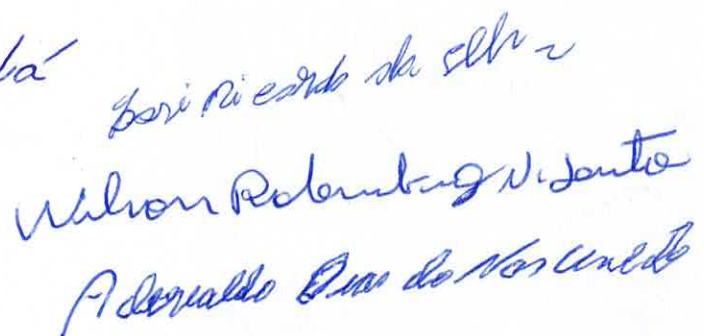 José Ricardo da Silva
Wilson Rolemberg N. Santos
Adenaldo Dias do Nascimento